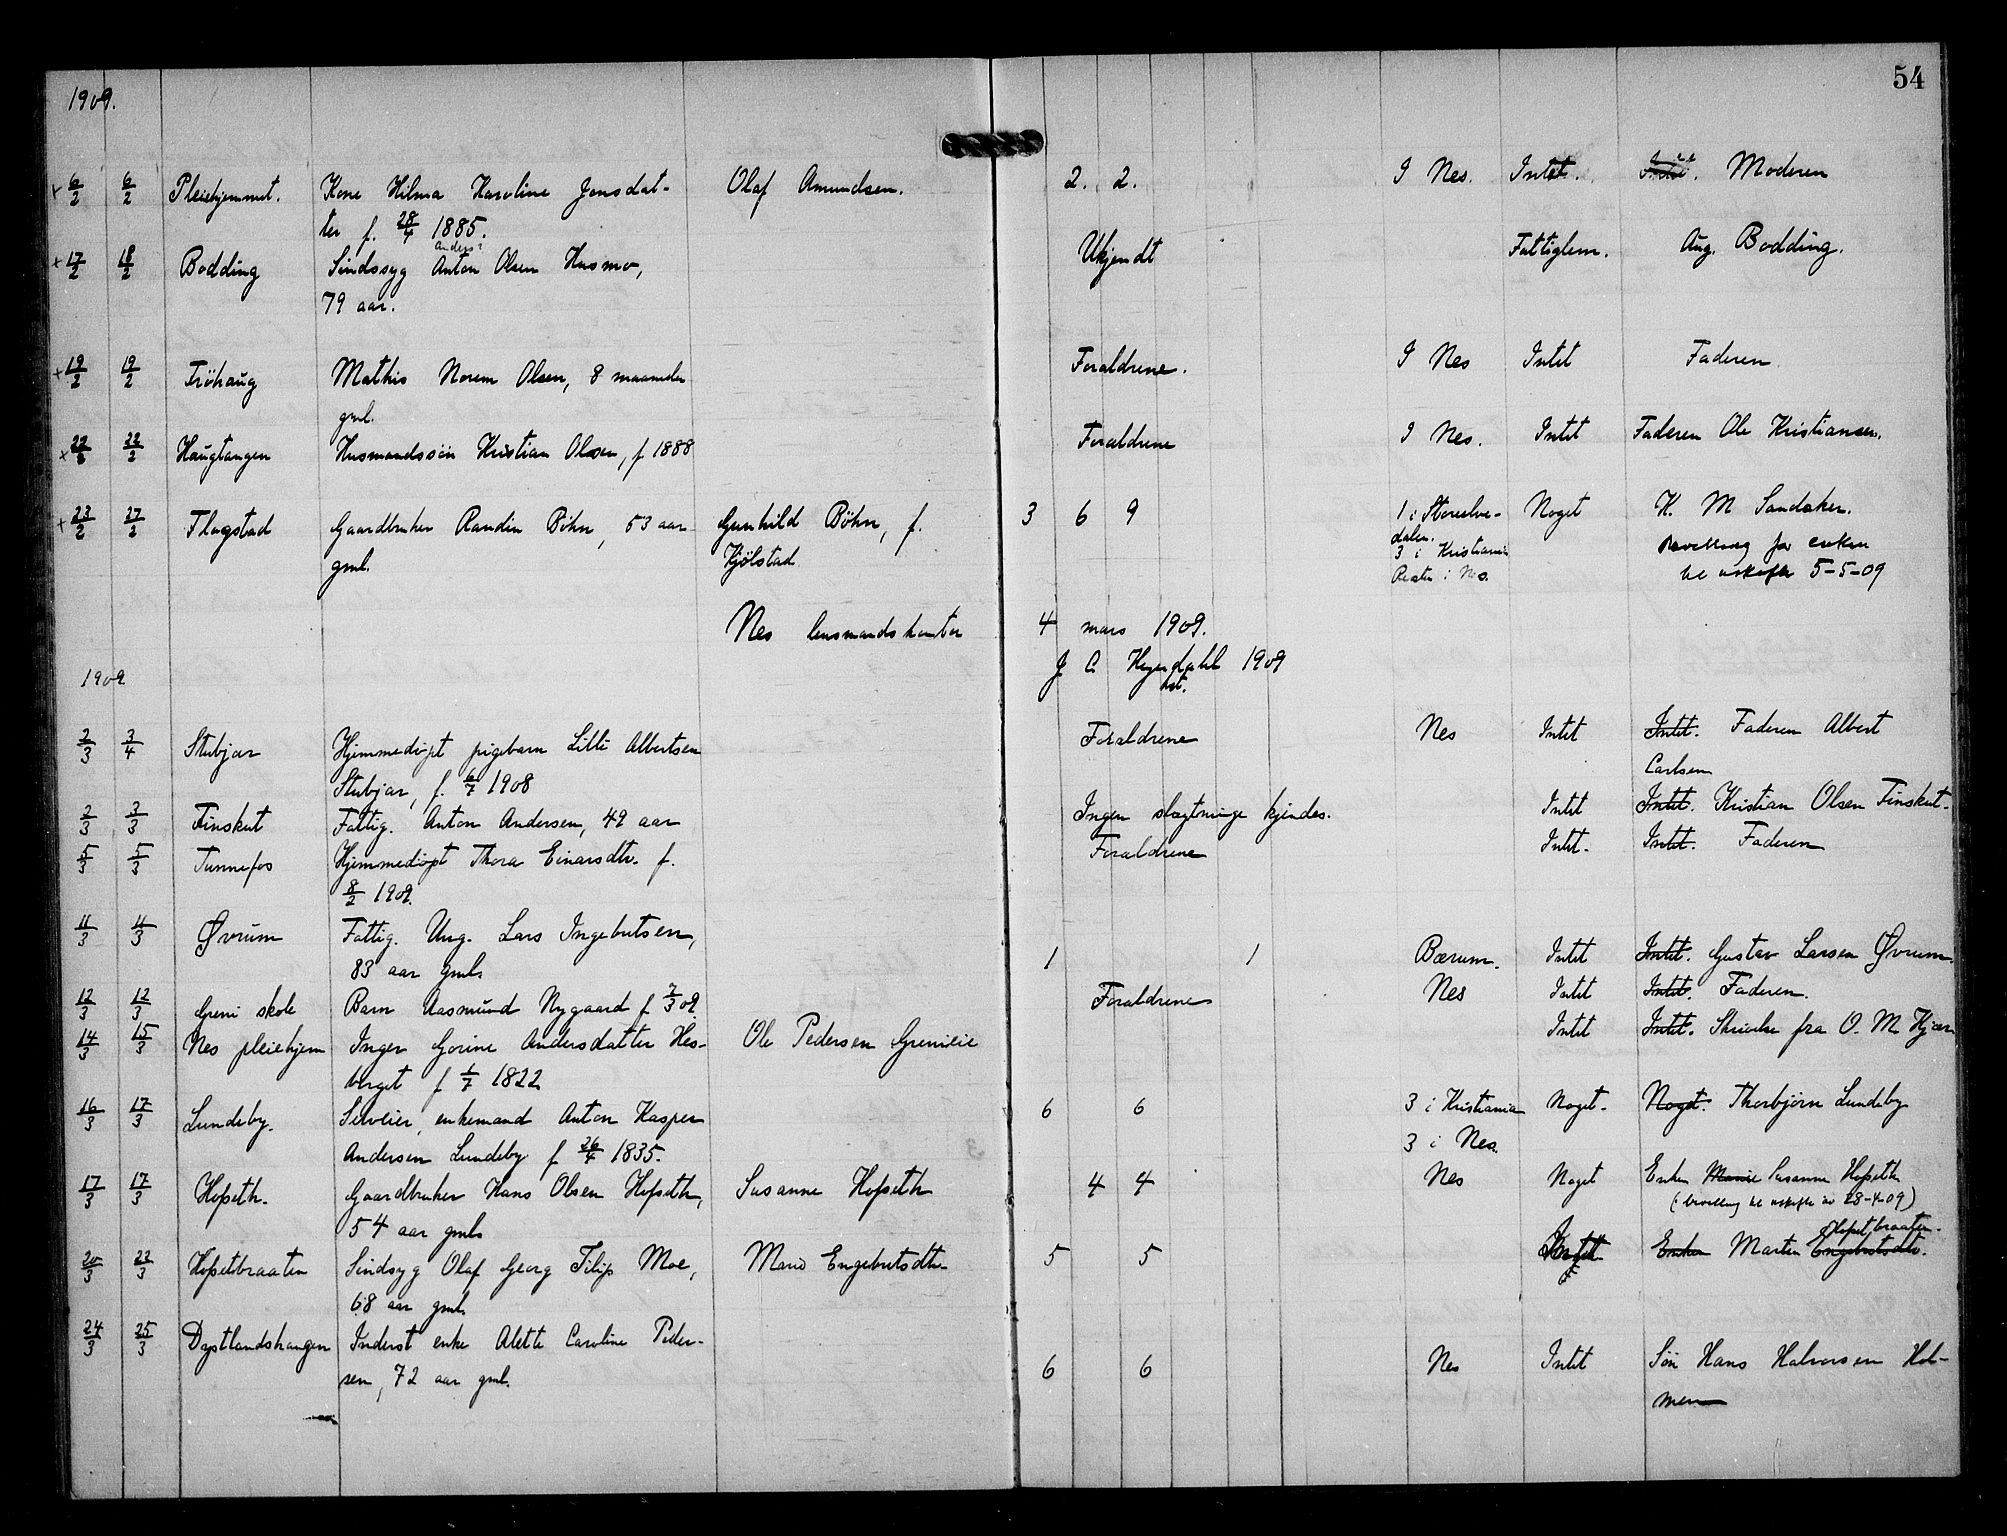 54
1909.
6/2 6/2 Pleiehjemmet. Kone Hilma Karoline Jonsdat- Olaf Amundsen. 2. 2. I Nes. Intet. Intet. Moderen
ter f. 28/4 1885.
Anders?
17/2 18/2 Bodding Sindssyg Anton Olsen Husmo, Ukjendt Fattiglem. Aug. Bodding.
79 aar.
19/2 19/2 Fröhaug Mathis Norem Olsen, 8 maaneder Forældrene. I Nes Intet Faderen
gml.
22/2 22/2 Haugtangen Husmandssön Kristian Olsen, f 1888 Forældrene I Nes. Intet Faderen Ole Kristiansen.
23/2 27/2 Flagstad Gaardbruker Randin Böhn, 53 aar Gunhild Böhn, f. 3 6 9 1 i Storelve- Noget K. M Sandaker.
gml. Kjölstad dalen. 3 i Kristiania Resten i Nes. Bevilling for enken
til uskifte 5-5-09
Nes lensmandskontor 4 mars 1909.
J C Hegerdahl 1909
kst.
1909
2/3 3/4 Stubjar Hjemmedöpt pigebarn Lilli Albertsen Forældrene Nes Intet Intet. Faderen Albert
Stubjar, f. 6/7 1908 Carlsen
2/3 3/3 Finskut Fattig. Anton Andersen, 49 aar Ingen slægtninge kjendes. Intet Intet. Kristian Olsen Finskut.
5/3 5/3 Tunnefos Hjemmedöpt Thora Einarsdtr. f. Forældrene Intet. Intet. Faderen
8/2 1909.
11/3 11/3 Øvrum Fattig. Ung. Lars Ingebretsen, 1 1 Bærum. Intet Intet. Gustav Larsen Øvrum.
83 aar gml.
12/3 12/3 Greni skole Barn Aasmund Nygaard f 7/3 09. Forældrene Nes Intet Intet. Faderen.
14/3 15/3 Nes pleiehjem Inger Gorine Andersdatter Hes- Ole Pedersen Grenieie Intet Intet. Skrivelse fra O. M Kjær
berget f 1/7 1822
16/3 17/3 Lundeby. Selveier, enkemand Anton Kasper 6 6 3 i Kristiania Noget. Noget. Thorbjörn Lundeby
Andersen Lundeby f 26/4 1835. 3 i Nes.
17/3 17/3 Hofseth. Gaardbruker Hans Olsen Hofseth, Susanne Hofseth 4 4 Nes Noget Enken Marie Susanne Hofseth
54 aar gml. (bevilling til uskifte av 28-4-09)
Hofsetbraaten.
20/3 23/3 Hofsetbraaten Sindsyg Olaf Georg Filip Moe, Marie Engebretsdtr. 5 5 Intet Enken Marten Engebretsdtr.
68 aar gml.
24/3 25/3 Dystlandshaugen Inderst enke Alette Caroline Peder- 6 6 Nes Intet Sön Hans Halvorsen Hol-
sen, 72 aar gml. men